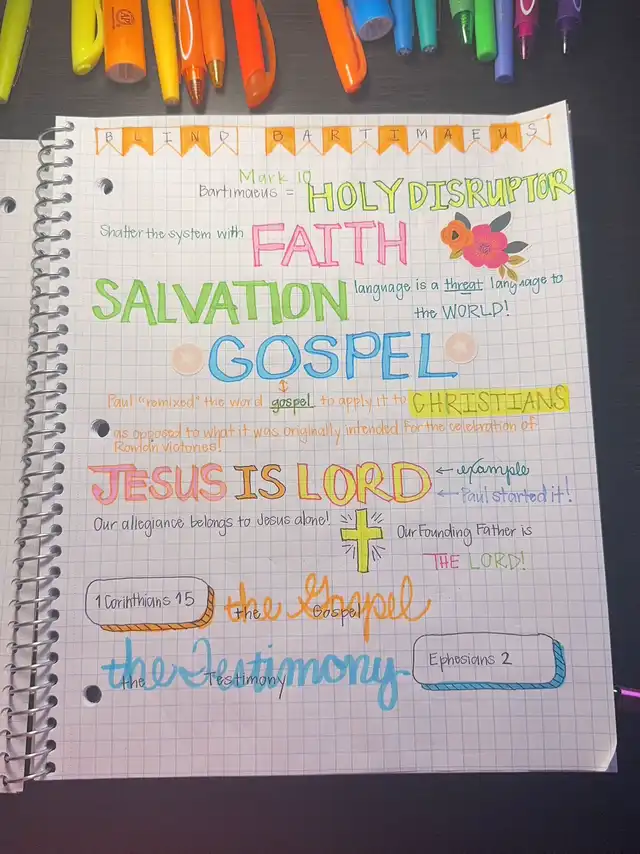 BLIND BARTIMAEUS
Mark 10
Bartimaeus = HOLY DISRUPTOR
Shatter the system with FAITH
SALVATION language is a threat language to
the WORLD!
GOSPEL
Paul "remixed" the word gospel to apply it to CHRISTIANS
as opposed to what it was originally intended for the celebration of
Roman victories!
JESUS IS LORD ← example
← Paul started it!
Our allegiance belongs to Jesus alone!
Our Founding Father is
THE LORD!
1 Corinthians 15
the Gospel
the Gospel
the Testimony
the Testimony
Ephesians 2